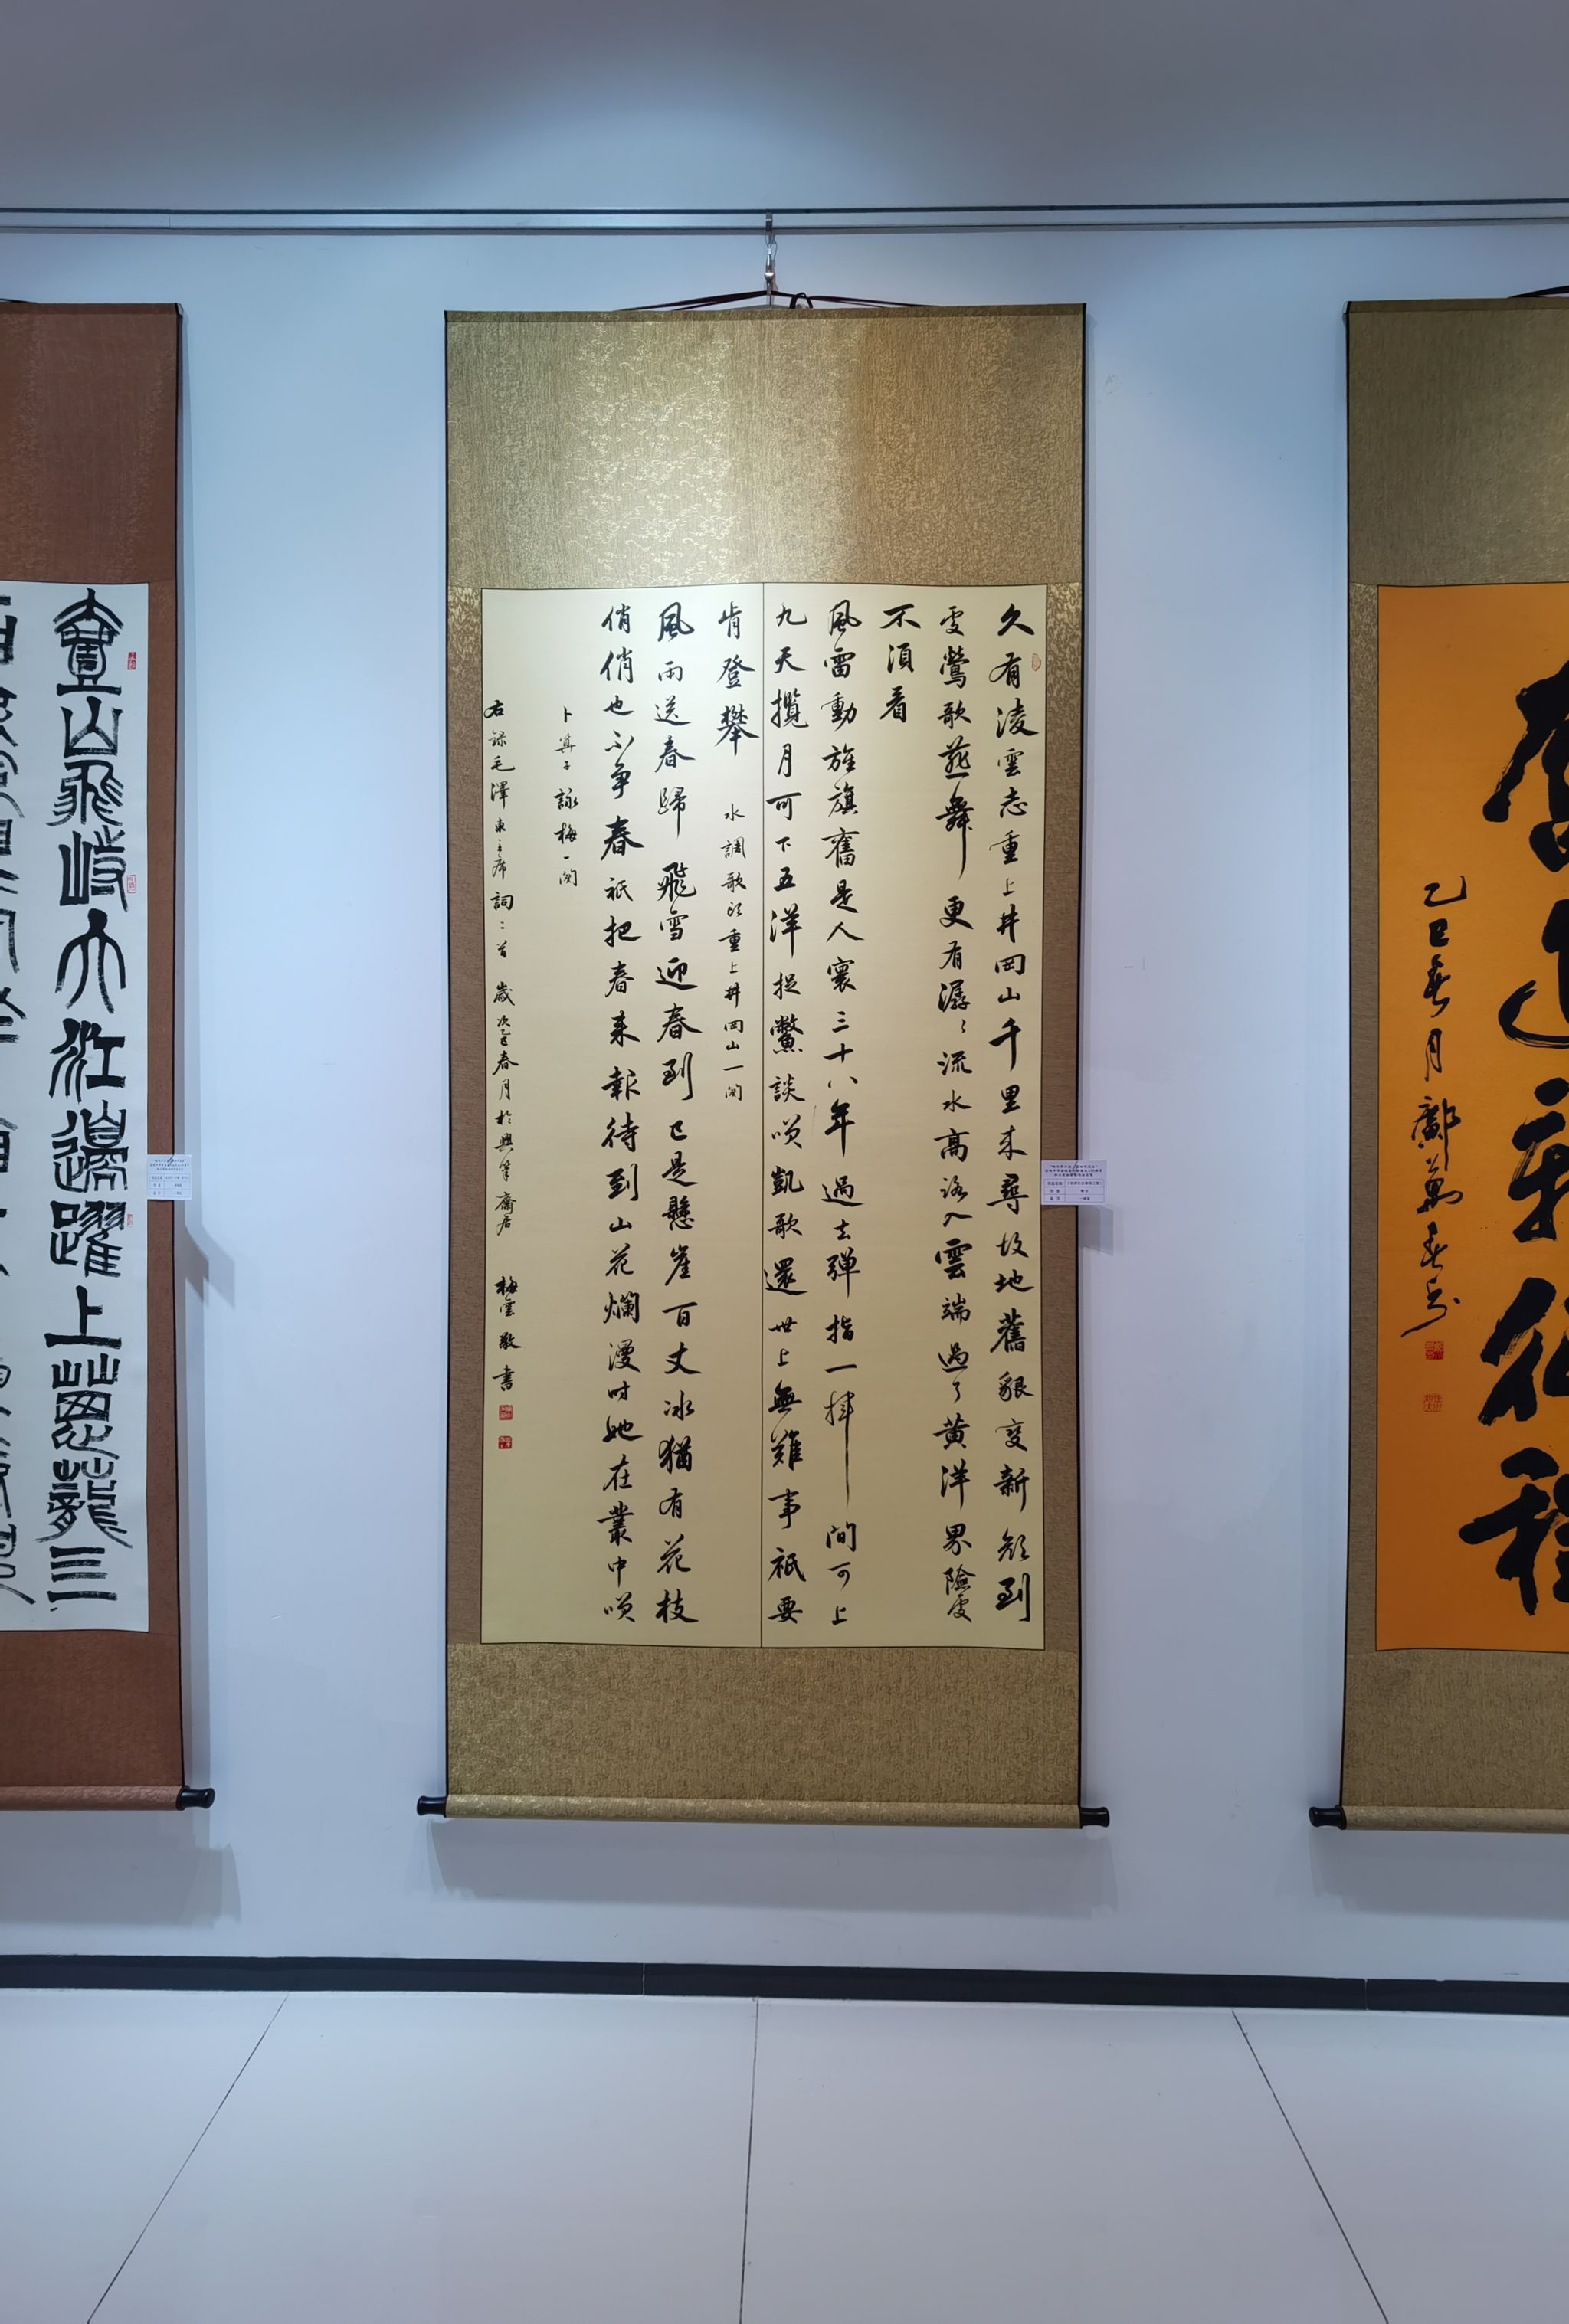 久有凌雲志重上井岡山千里來尋故地舊貌變新顏到
處鶯歌燕舞更有潺〻流水高路入雲端過了黃洋界險處
不須看
風雷動旌旗奮是人寰三十八年過去彈指一揮間可上
九天攬月可下五洋捉鱉談唉凱歌還世上無難事祇要
肯登攀 水調歌頭重上井岡山一闋
風雨送春歸飛雪迎春到已是懸崖百丈冰猶有花枝
俏俏也不爭春祇把春來報待到山花爛漫時她在叢中唉
卜算子詠梅一闋
右録毛澤東主席詞二首 歲次乙巳春月於興筆齋居 梅雲敬書
山飛峙大江邊躍上蔥蘢三
奮進新征程
乙巳春月鄺萬春書